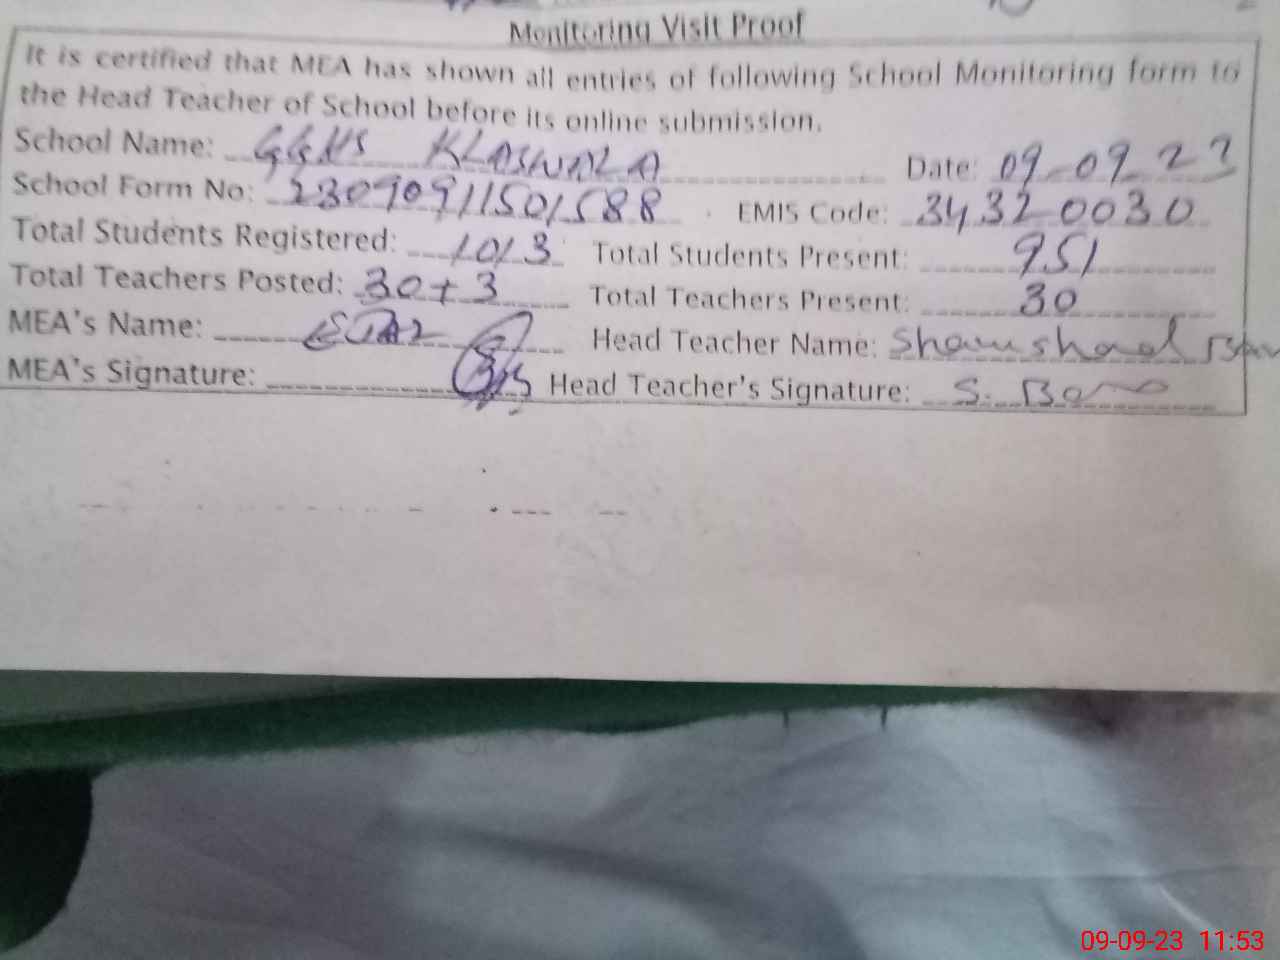 Monitoring Visit Proof
It is certified that MEA has shown all entries of following School Monitoring form to
the Head Teacher of School before its online submission.
School Name: GGHS KLASWALA Date: 09-09-23
School Form No: 23090911501588 EMIS Code: 34320030
Total Students Registered: 1013 Total Students Present: 951
Total Teachers Posted: 30+3 Total Teachers Present: 30
MEA's Name: Head Teacher Name: Shamshad
MEA's Signature: Head Teacher's Signature: S. Bano
09-09-23 11:53